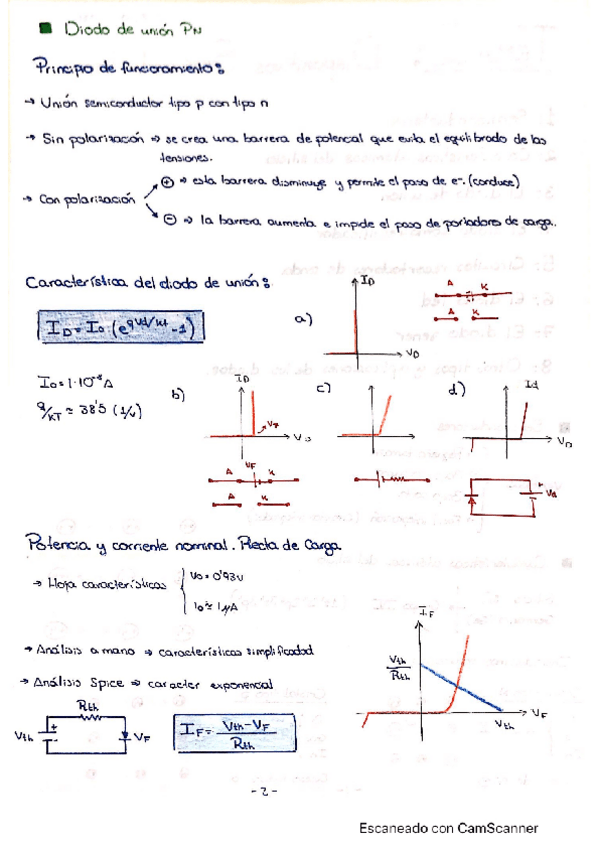 Diodo de unión PN
Principio de funcionamiento:
→ Unión semiconductor tipo p con tipo n
→ Sin polarización ⇒ se crea una barrera de potencial que evita el equilibrado de las
tensiones.
→ Con polarización
⊕ ⇒ esta barrera disminuye y permite el paso de e⁻. (conduce)
⊖ ⇒ la barrera aumenta e impide el paso de portadores de carga.
Característica del diodo de unión:
I_D = I_0 (e^{qVd/KT} - 1)
a)
I_D
V_D
A K
A K
q/KT ≈ 38'5 (1/V)
b)
I_D
V_F
V_D
A V_F K
A K
c)
d)
Id
V_D
Vd
Potencia y corriente nominal. Recta de Carga.
→ Hoja características
V_0 = 0'93V
I_0 ≈ 1μA
→ Análisis a mano ⇒ características simplificadad
→ Análisis Spice ⇒ caracter exponencial
R_th
V_th
V_F
I_F = (V_th - V_F) / R_th
I_F
V_th / R_th
V_F
V_th
- 2 -
Escaneado con CamScanner